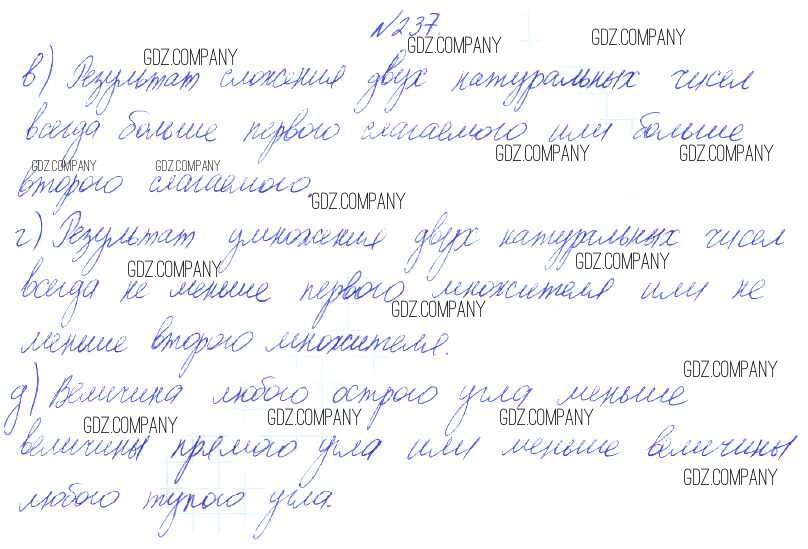 №237
GDZ.COMPANY GDZ.COMPANY GDZ.COMPANY
в) Результат сложения двух натуральных чисел
всегда больше первого слагаемого или больше
GDZ.COMPANY GDZ.COMPANY GDZ.COMPANY GDZ.COMPANY
второго слагаемого.
GDZ.COMPANY
г) Результат умножения двух натуральных чисел
GDZ.COMPANY GDZ.COMPANY
всегда не меньше первого множителя или не
GDZ.COMPANY
меньше второго множителя.
GDZ.COMPANY
д) Величина любого острого угла меньше
GDZ.COMPANY GDZ.COMPANY GDZ.COMPANY
величины прямого угла или меньше величины
GDZ.COMPANY
любого тупого угла.